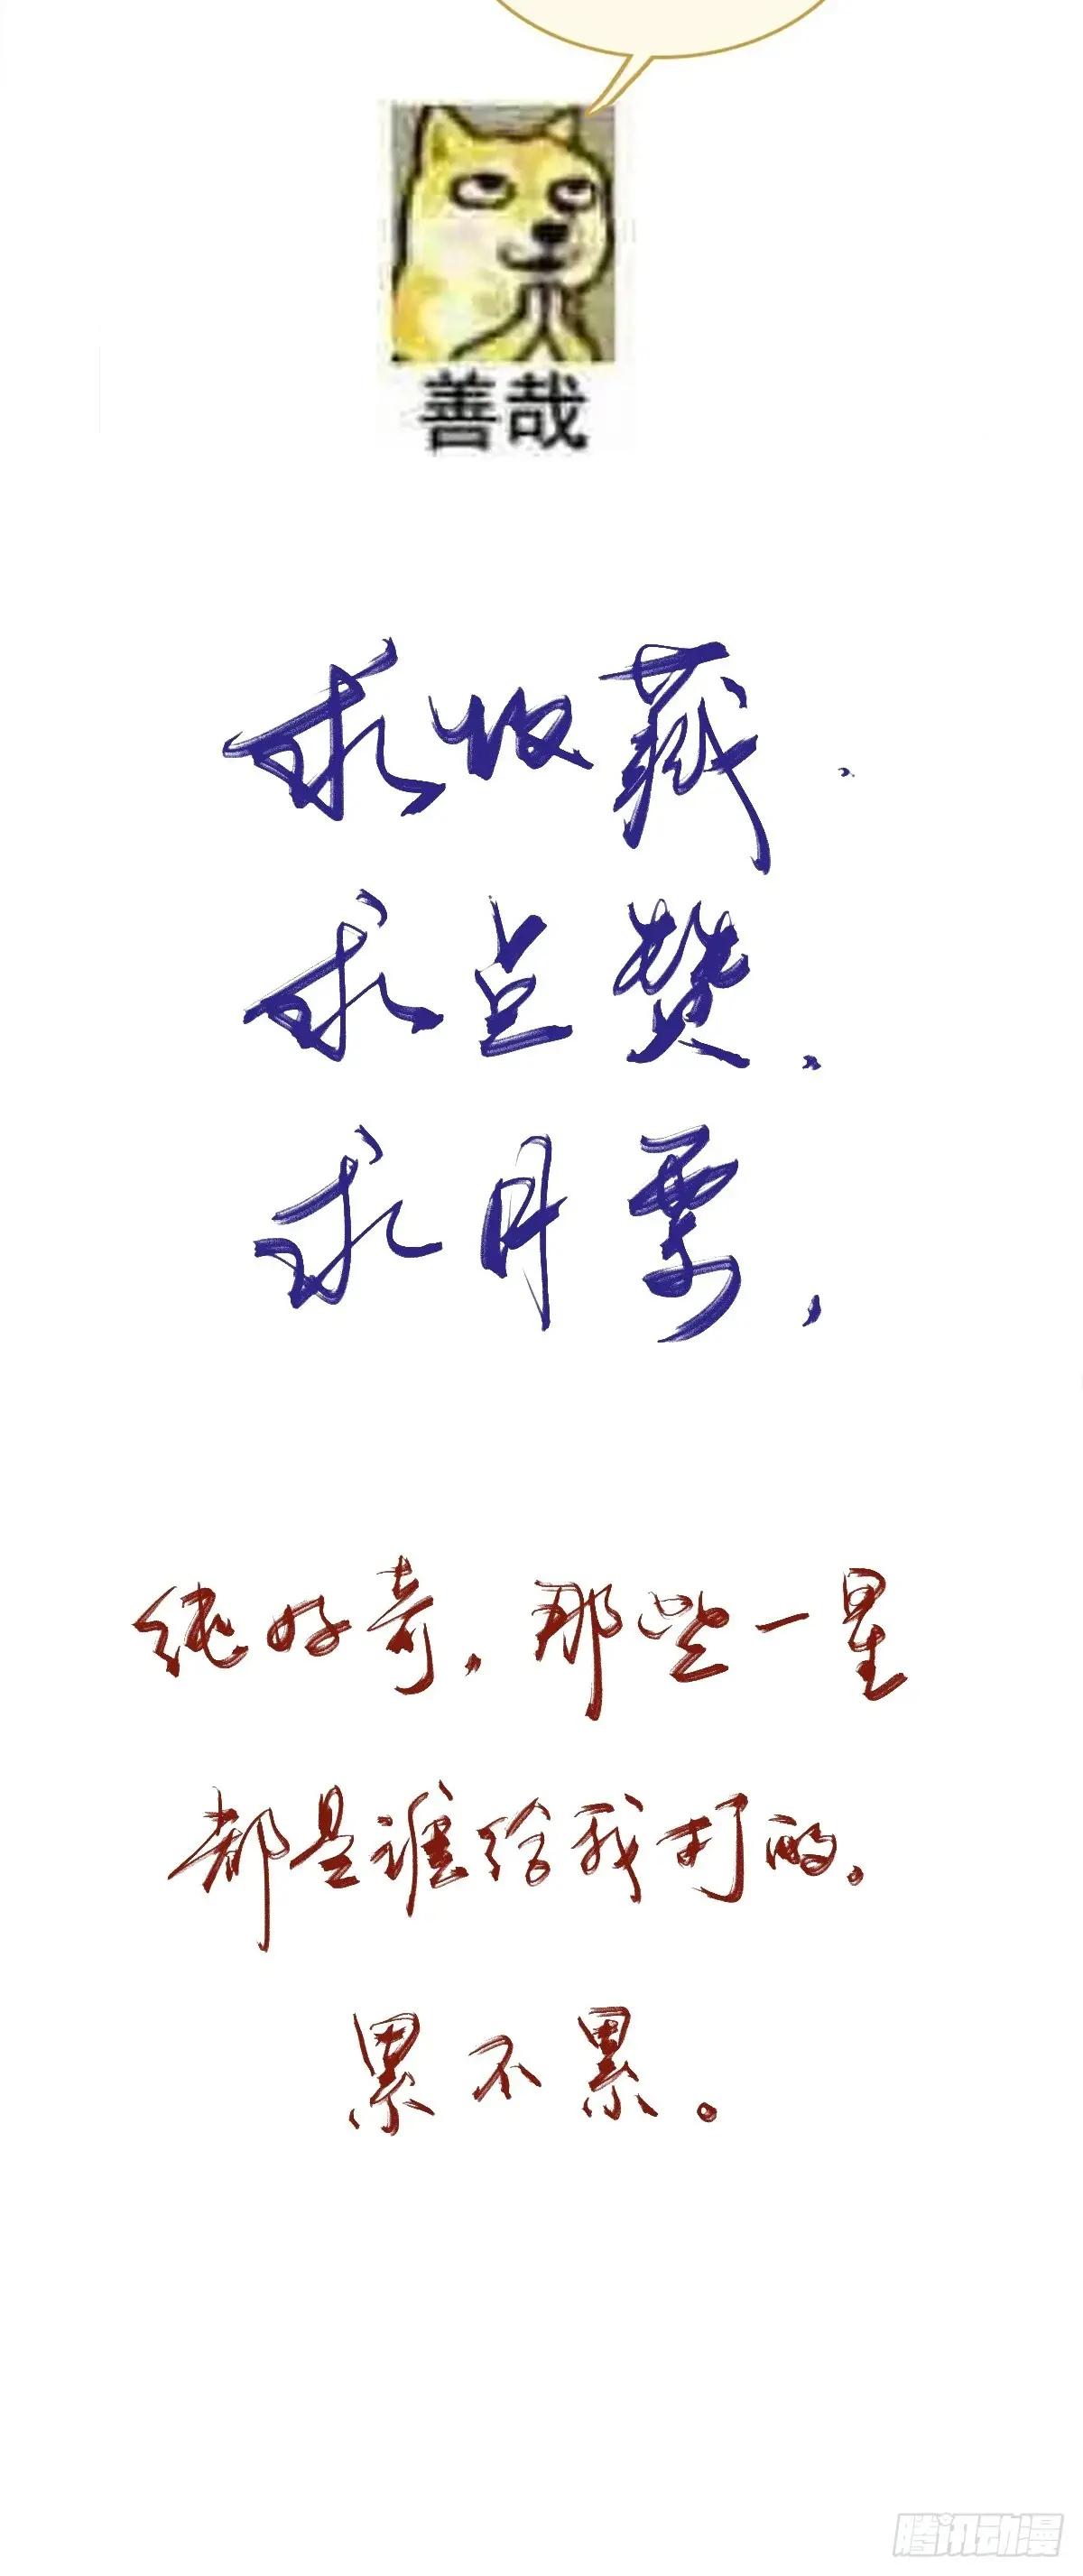 善哉
求收藏.
求点赞.
求月票,
纯好奇,那些一星
都是谁给我打的.
累不累。
腾讯动漫